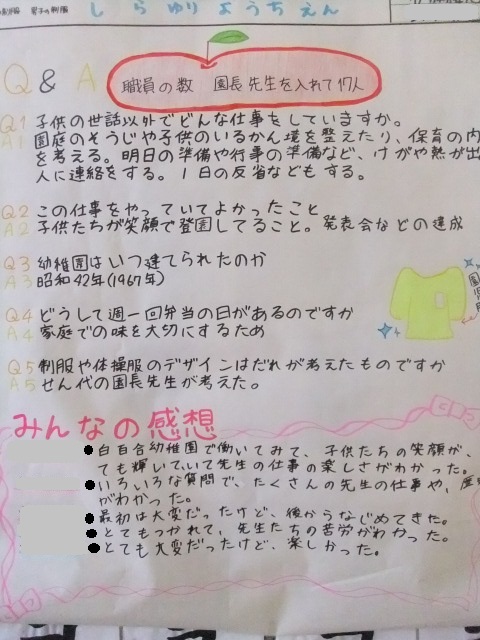 男子の制服
しらゆりようちえん
Q & A
職員の数 園長先生を入れて17人
Q1 子供の世話以外でどんな仕事をしていますか。
A1 園庭のそうじや子供のいるかん境を整えたり、保育の内
を考える。明日の準備や行事の準備など、けがや熱が出
人に連絡をする。1日の反省などもする。
Q2 この仕事をやっていてよかったこと
A2 子供たちが笑顔で登園してること。発表会などの達成
Q3 幼稚園はいつ建てられたのか
A3 昭和42年(1967年)
Q4 どうして週一回弁当の日があるのですか
A4 家庭での味を大切にするため
Q5 制服や体操服のデザインはだれが考えたものですか
A5 せん代の園長先生が考えた。
みんなの感想
●白百合幼稚園で働いてみて、子供たちの笑顔が、
ても輝いていて先生の仕事の楽しさがわかった。
●いろいろな質問で、たくさんの先生の仕事や、
がわかった。
●最初は大変だったけど、後からなじめてきた。
●とてもつかれて、先生たちの苦労がわかった。
●とても大変だったけど、楽しかった。